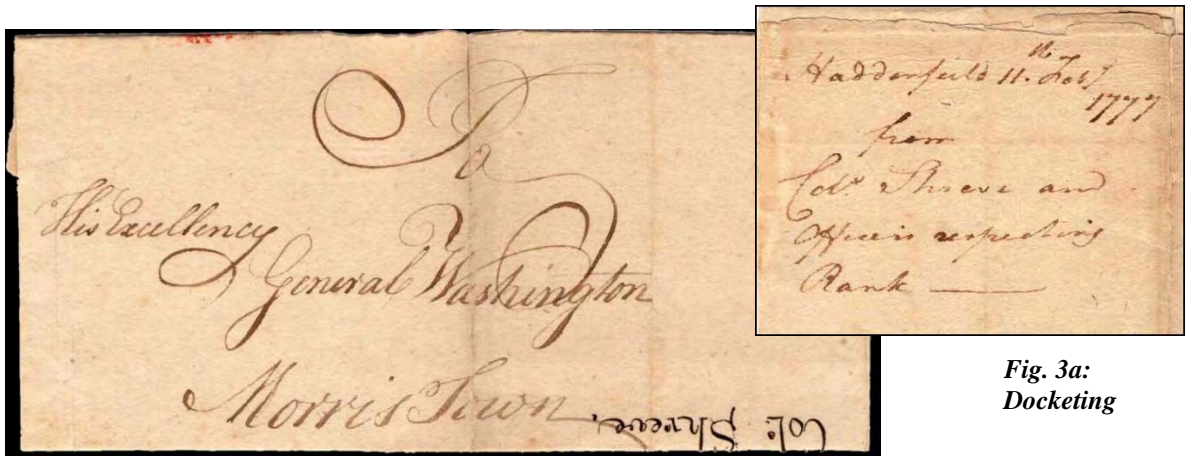 To
His Excellency
General Washington
Morris Town
Col: Shreve,
Haddenfeild 11.th Feby
1777
from
Colo. Shreve and
Officers respecting
Rank
Fig. 3a:
Docketing